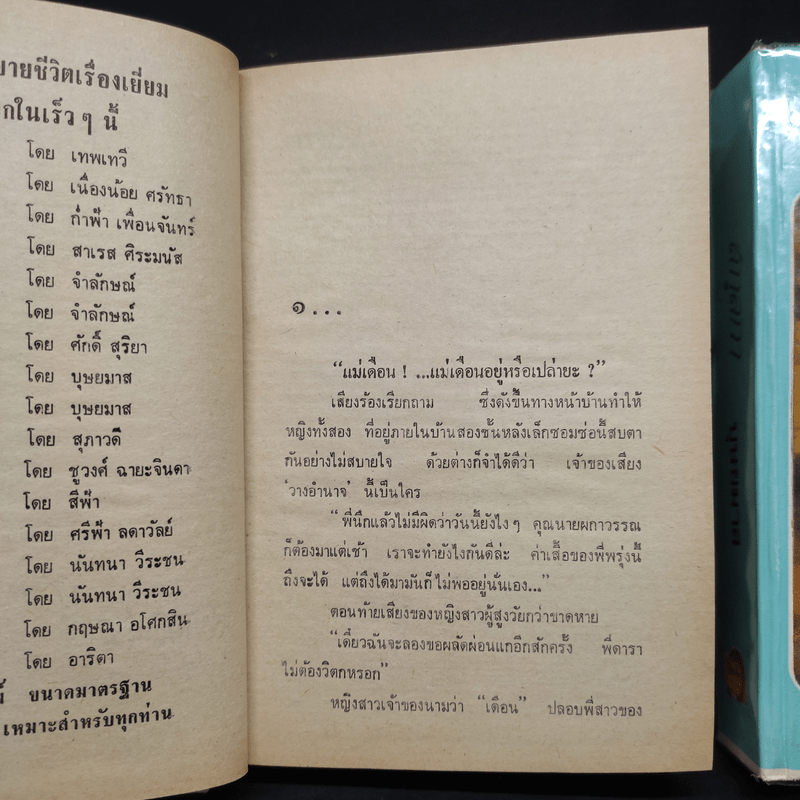 ายชีวิตเรื่องเยี่ยม
กในเร็ว ๆ นี้
โดย เทพเทวี
โดย เนื่องน้อย ศรัทธา
โดย ก่ำฟ้า เพื่อนจันทร์
โดย สาเรส ศิระมนัส
โดย จำลักษณ์
โดย จำลักษณ์
โดย ศักดิ์ สุริยา
โดย บุษยมาส
โดย บุษยมาส
โดย สุภาวดี
โดย ชูวงศ์ ฉายะจินดา
โดย สีฟ้า
โดย ศรีฟ้า ลดาวัลย์
โดย นันทนา วีระชน
โดย นันทนา วีระชน
โดย กฤษณา อโศกสิน
โดย อาริตา
์ ขนาดมาตรฐาน
เหมาะสำหรับทุกท่าน
๑ . . .
“แม่เดือน ! ...แม่เดือนอยู่หรือเปล่ายะ ?”
เสียงร้องเรียกถาม ซึ่งดังขึ้นทางหน้าบ้านทำให้
หญิงทั้งสอง ที่อยู่ภายในบ้านสองชั้นหลังเล็กซอมซ่อนี้สบตา
กันอย่างไม่สบายใจ ด้วยต่างก็จำได้ดีว่า เจ้าของเสียง
‘วางอำนาจ’ นี้เป็นใคร
“พี่นึกแล้วไม่มีผิดว่าวันนี้ยังไง ๆ คุณนายผกาวรรณ
ก็ต้องมาแต่เช้า เราจะทำยังไงกันดีล่ะ ค่าเสื้อของพี่พรุ่งนี้
ถึงจะได้ แต่ถึงได้มามันก็ไม่พออยู่นั่นเอง...”
ตอนท้ายเสียงของหญิงสาวผู้สูงวัยกว่าขาดหาย
“เดี๋ยวฉันจะลองขอผลัดผ่อนแกอีกสักครั้ง พี่ดารา
ไม่ต้องวิตกหรอก”
หญิงสาวเจ้าของนามว่า “เดือน” ปลอบพี่สาวของ
บุษยมาส